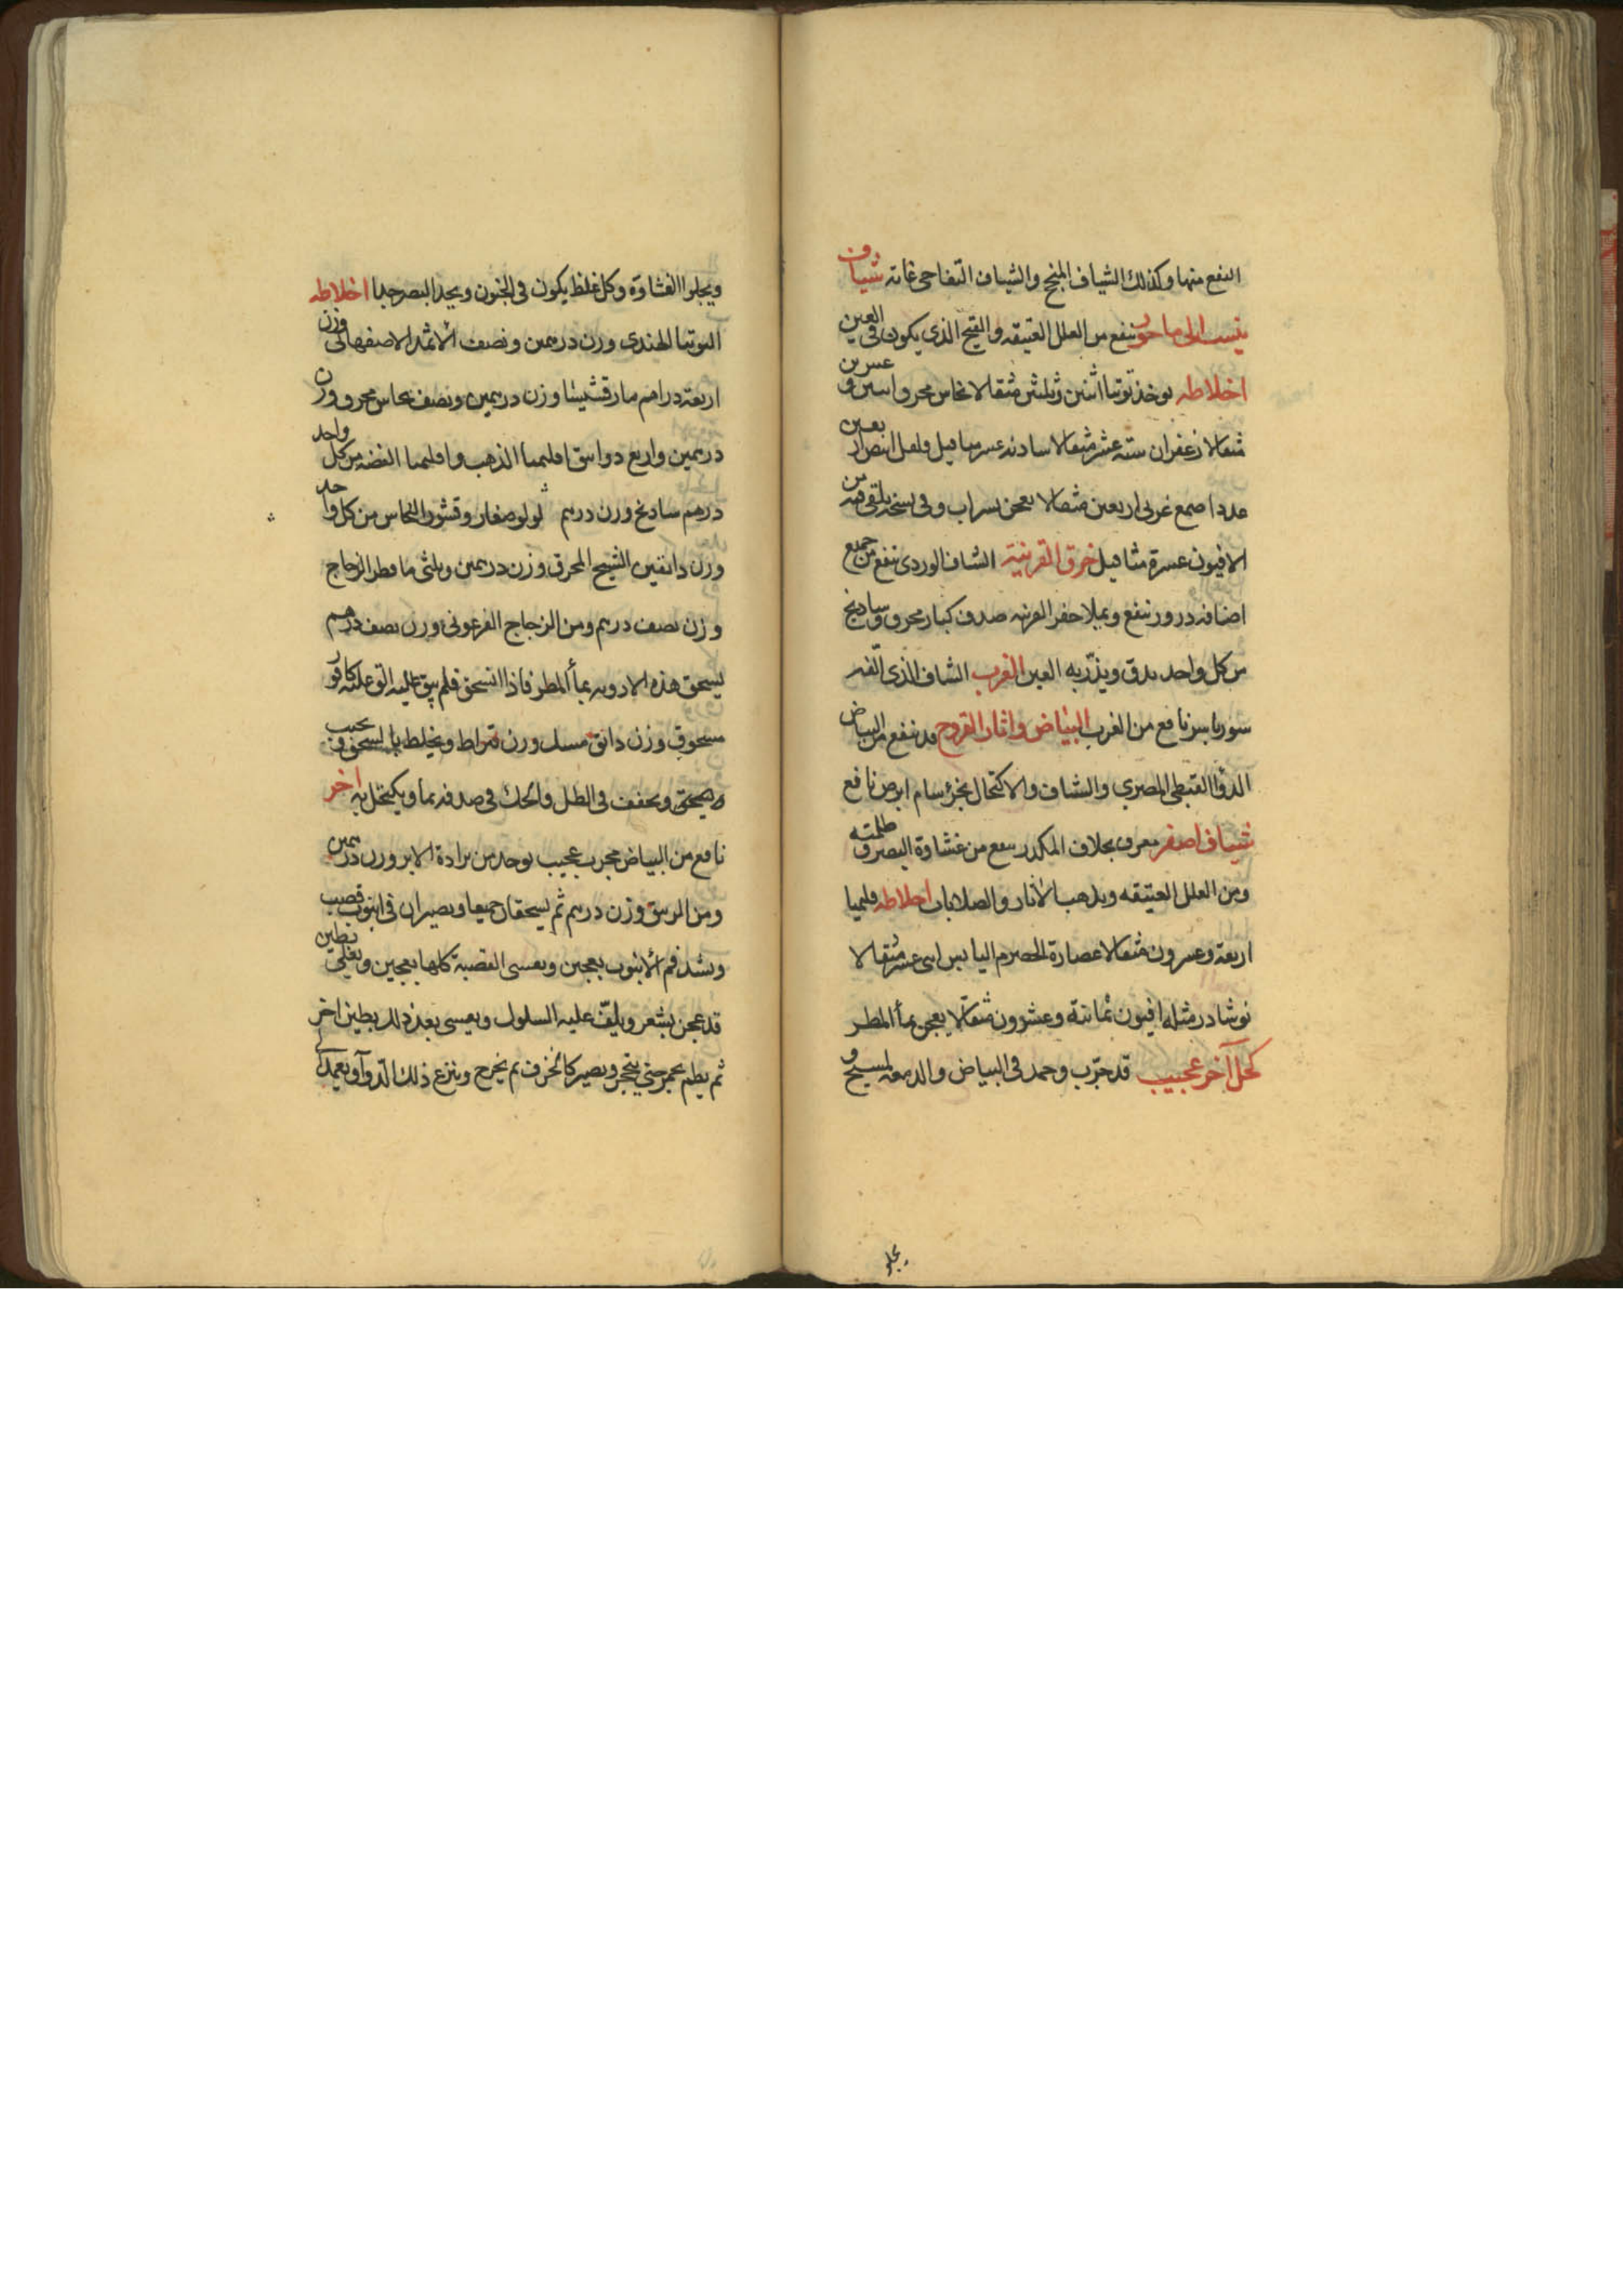 النفع منها وكذلك الشياف المنجح والشياف التفاحي غاية شياف
ينسب الى ماحور ينفع من العلل العتيقه والقيح الذي يكون في العين
اخلاطه يوخذ توتيا اثنين وثلثين مثقالا نحاس محرق اثنين وعشرين
مثقالا زعفران ستة عشر مثقالا سادنه عشر مثاقيل فلفل ابيض اربعين
عددا صمغ عربى اربعين مثقالا يعجن بشراب وفى نسخه يلقى فيه من
الافيون عشرة مثاقيل خرق القرنية الشياف الوردى ينفع من جميع
اضافه درور ينفع ويملا حفر القرنيه صدف كبار محرق وسادنج
من كل واحد يدق ويذرّ به العين الغرب الشياف الذى الّفه
سورياس نافع من الغرب البياض واثار القروح قد ينفع من البياض
الدوا القبطى المصري والشياف والاكتحال بخرؤ سام ابرص نافع
شياف اصفر معرف بجلاف المكدر ينفع من غشاوة البصر وظلمته
ومن العلل العتيقه ويذهب الاثار والصلابات اخلاطه قليميا
اربعة وعشرون مثقالا عصارة الحصرم اليابس اثنى عشر مثقالا
نوشادر مثله افيون ثمانية وعشرون مثقالا يعجن بماء المطر
كحل آخر عجيب قد جرّب وحمد فى البياض والدمعه لمسيح و
يجلو
ويجلوا الغشاوة وكل غلظ يكون فى الجفون ويحد البصر جدا اخلاطه
التوتيا الهندى وزن درهمين ونصف الاثمد الاصفهانى وزن
اربعة دراهم مارقشيشا وزن درهمين ونصف نحاس محرق وزن
درهمين واربع دوانيق اقليميا الذهب واقليميا الفضه من كل واحد
درهم سادنج وزن درهم لولو صغار وقشور النحاس من كل واحد
وزن دانقين الشيح المحرق وزن درهمين وثلثى ما قطر الزجاج
وزن نصف درهم ومن الزجاج الفرعونى وزن نصف درهم
يسحق هذه الادويه بماء المطر فاذا انسحق فلم يبق عليه الق عليه كافور
مسحوق وزن دانق مسك وزن قيراط ويخلط بالسحق و يحبب
ويحفف فى الظل والحك فى صدفه بماء ويكتحل به اخر
نافع من البياض مجرب عجيب يوخذ من برادة الابر وزن درهمين
ومن المرسق وزن درهم ثم يسحقان جميعا ويصيران فى انبوب قصب
ويشد فم الانبوب بعجين ويغشى القصبة كلها بعجين ويعلى بطين
قد عجن بشعر ويلفّ عليه السلوك ويغشى بعد ذلك بطين اخر
ثم يطم بجمر حتى يتحجر ويصير كالخزف ثم يخرج وينزع ذلك الدوآ ويعمد